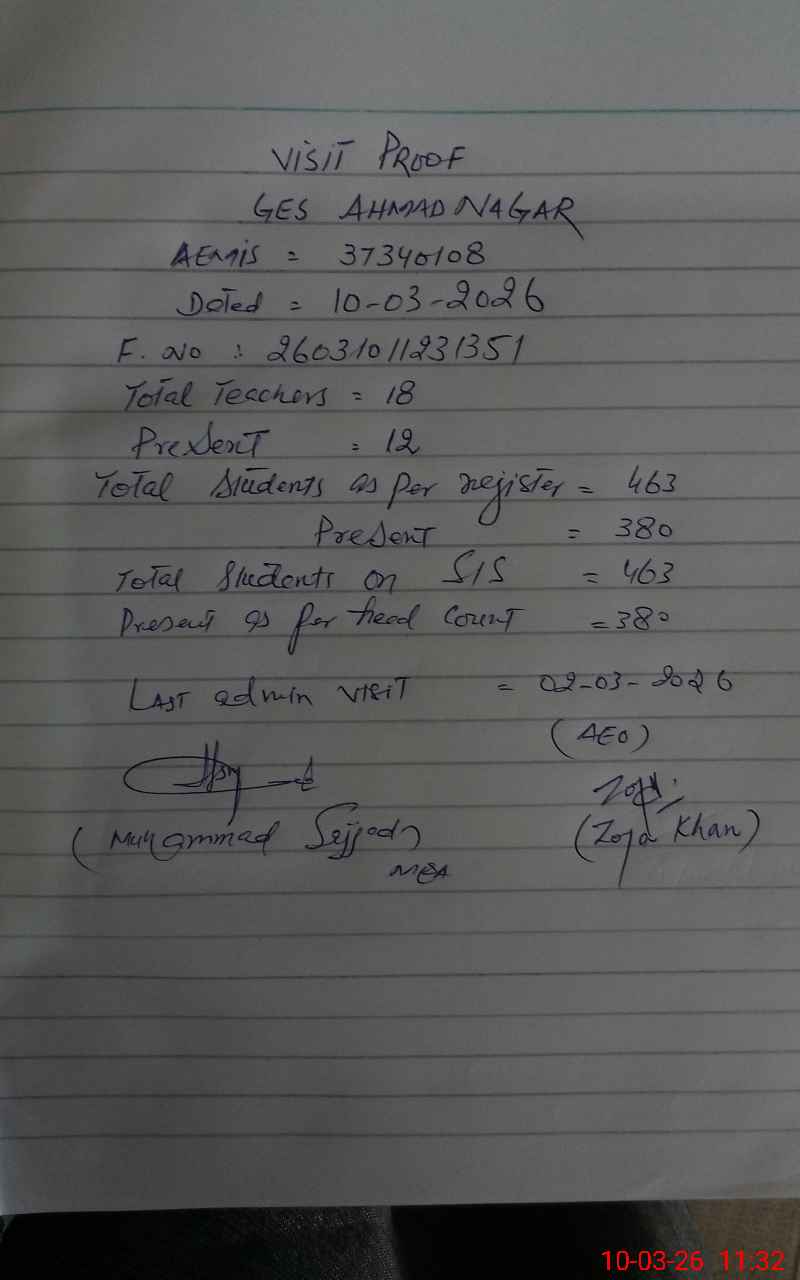 VISIT PROOF
GES AHMAD NAGAR
AEMIS = 37340108
Dated = 10-03-2026
F. No : 26031011231351
Total Teachers = 18
Present = 12
Total Students as per register = 463
Present = 380
Total Students on SIS = 463
Present as per head count = 380
LAST admin VISIT = 02-03-2026
(AEO)
(Muhammad Sajjad) (Zoya Khan)
MEA
10-03-26 11:32